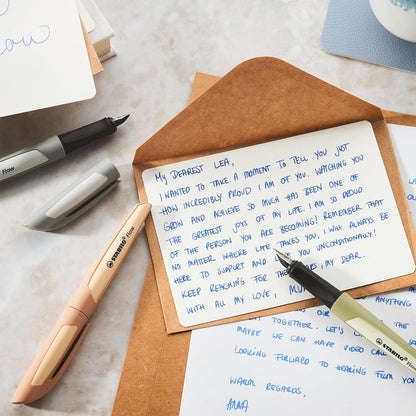 now
Flow
MY DEAREST LEA,
I WANTED TO TAKE A MOMENT TO TELL YOU JUST
HOW INCREDIBLY PROUD I AM OF YOU. WATCHING YOU
GROW AND ACHIEVE SO MUCH HAS BEEN ONE OF
THE GREATEST JOYS OF MY LIFE. I AM SO PROUD
OF THE PERSON YOU ARE BECOMING! REMEMBER THAT
NO MATTER WHERE LIFE TAKES YOU, I WILL ALWAYS BE
HERE TO SUPPORT AND YOU UNCONDITIONALLY!
KEEP REACHING FOR THE MY DEAR.
WITH ALL MY LOVE,
STABILO Flow
STABILO Flow
ANYTHING
TOGETHER. LET'S
MAYBE WE CAN HAVE VIDEO CALL
LOOKING FORWARD TO HEARING FROM YOU
WARM REGARDS,
ANNA